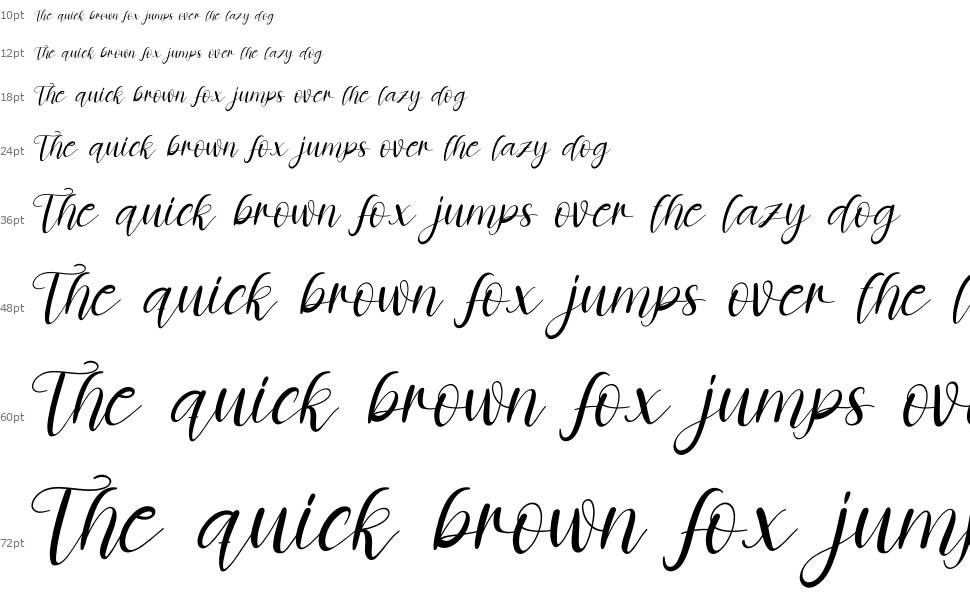 10pt The quick brown fox jumps over the lazy dog
12pt The quick brown fox jumps over the lazy dog
18pt The quick brown fox jumps over the lazy dog
24pt The quick brown fox jumps over the lazy dog
36pt The quick brown fox jumps over the lazy dog
48pt The quick brown fox jumps over the l
60pt The quick brown fox jumps ov
72pt The quick brown fox jum